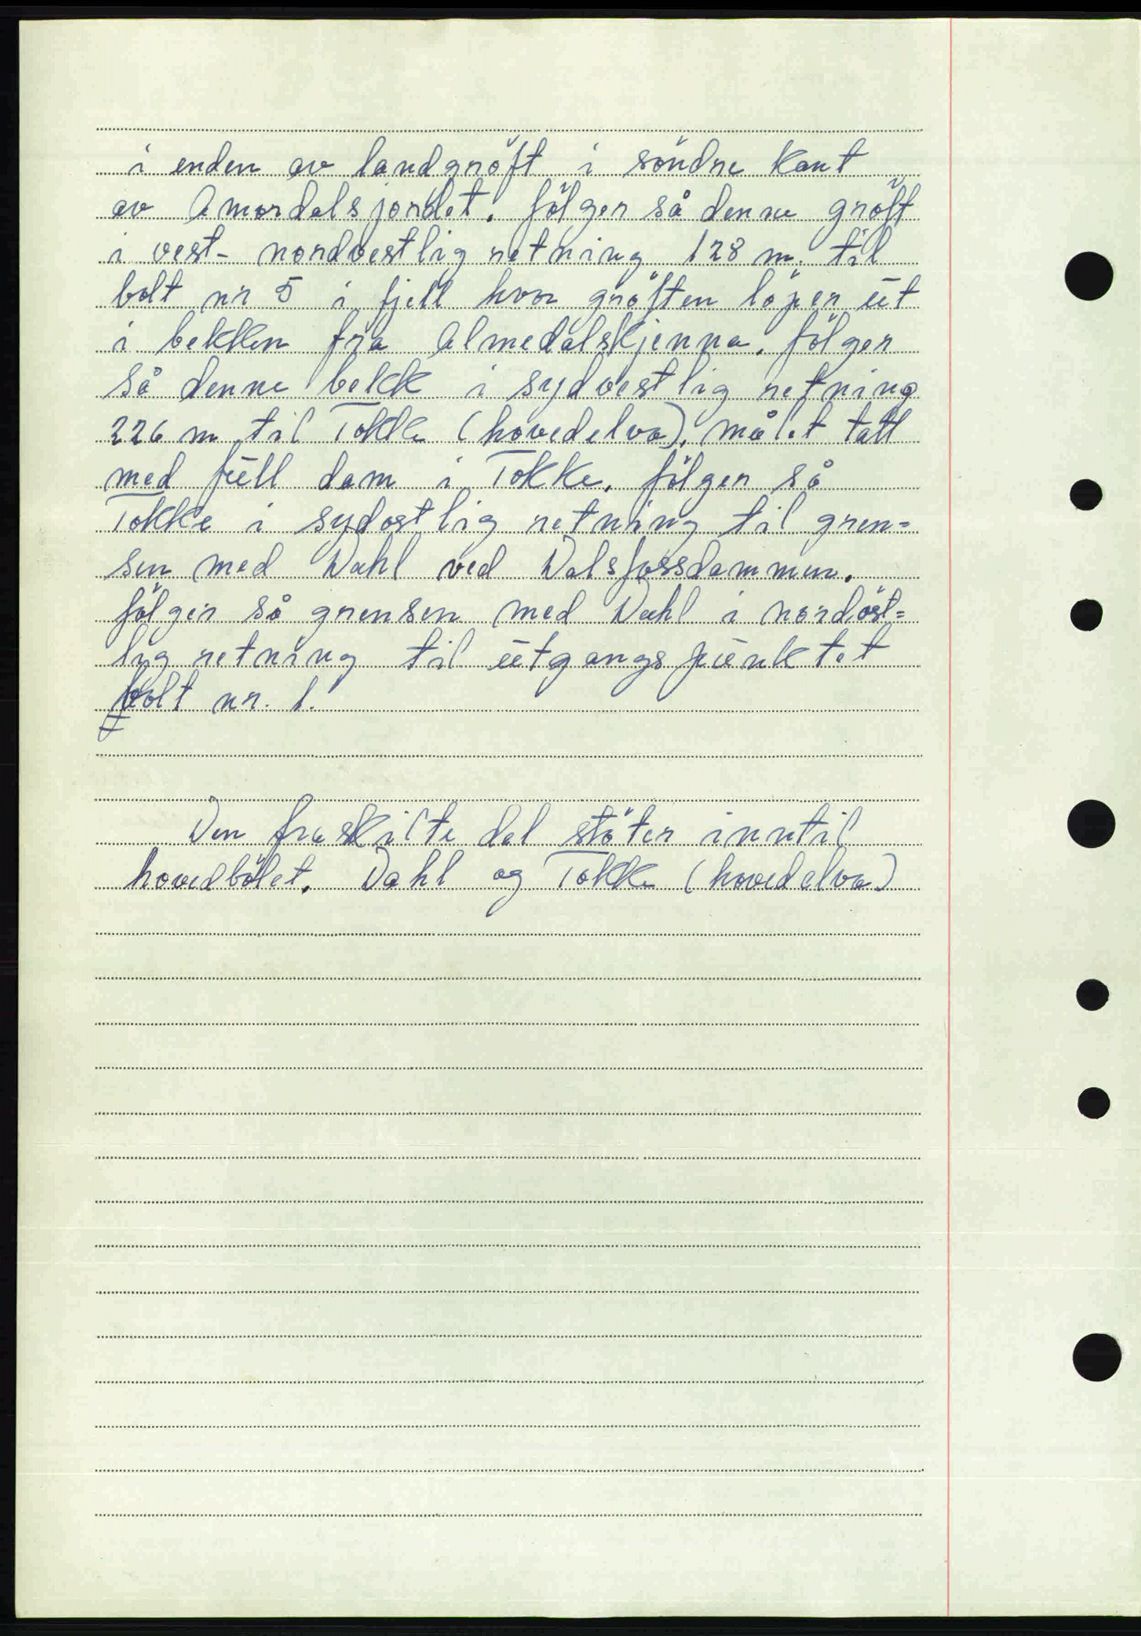 i enden av landgröft i söndre kant
av Amordalsjordet. følger så denne gröft
i vest- nordvestlig retning 128 m. til
bolt nr 5 i fjell hvor gröften löper ut
i bekken fra Almedalskjenna. fölger
så denne bekk i sydvestlig retning
226 m til Tokke (hovedelva), målet tatt
med full dam i Tokke. fölger så
Tokke i sydostlig retning til gren=
sen med Dahl ved Dalsfossdammen.
fölger så grensen med Dahl i nordöst=
lig retning til utgangspunktet
bolt nr. 1.
Den fraskilte del stöter inntil
hovedbölet. Dahl og Tokke (hovedelva)